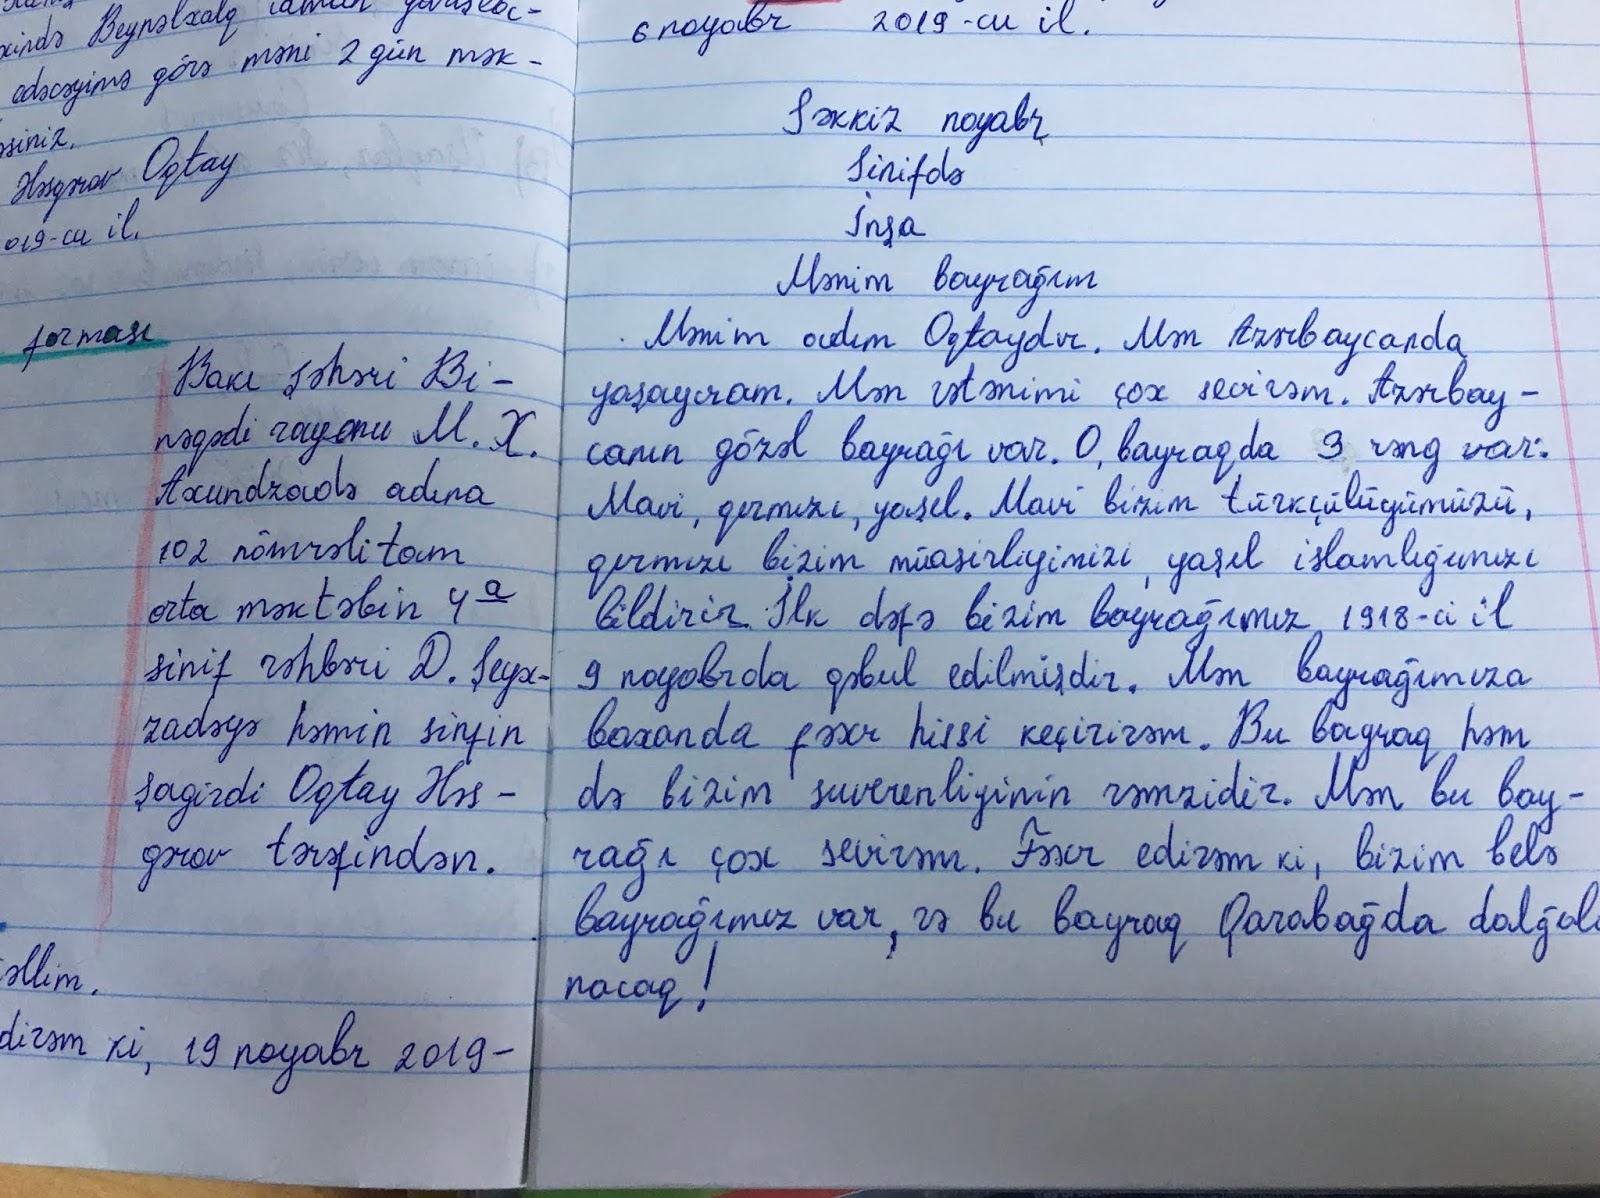 Beynəlxalq
ədəcəyimə görə məni 2 gün mək-
siniz.
Həsgərov Oqtay
019-cu il.
forması
Bakı şəhəri Bi-
nəqədi rayonu M. X.
Axundzadə adına
102 nömrəli tam
orta məktəbin 4 a
sinif rəhbəri D. Şeyx-
zadəyə həmin sinfin
şagirdi Oqtay Həs-
gərov tərəfindən.
əllim.
dirəm ki, 19 noyabr 2019-
6 noyabr 2019-cu il.
Səkkiz noyabr
Sinifdə
İnşa
Mənim bayrağım
Mənim adım Oqtaydır. Mən Azərbaycanda
yaşayıram. Mən vətənimi çox sevirəm. Azərbay-
canın gözəl bayrağı var. O, bayraqda 3 rəng var:
Mavi, qırmızı, yaşıl. Mavi bizim türkçülüyümüzü,
qırmızı bizim müasirliyimizi, yaşıl islamlığımızı
bildirir. İlk dəfə bizim bayrağımız 1918-ci il
9 noyabrda qəbul edilmişdir. Mən bayrağımıza
baxanda fəxr hissi keçirirəm. Bu bayraq həm
də bizim suverenliyinin rəmzidir. Mən bu bay-
rağı çox sevirəm. Fəxr edirəm ki, bizim belə
bayrağımız var, və bu bayraq Qarabağda dalğala
nacaq!